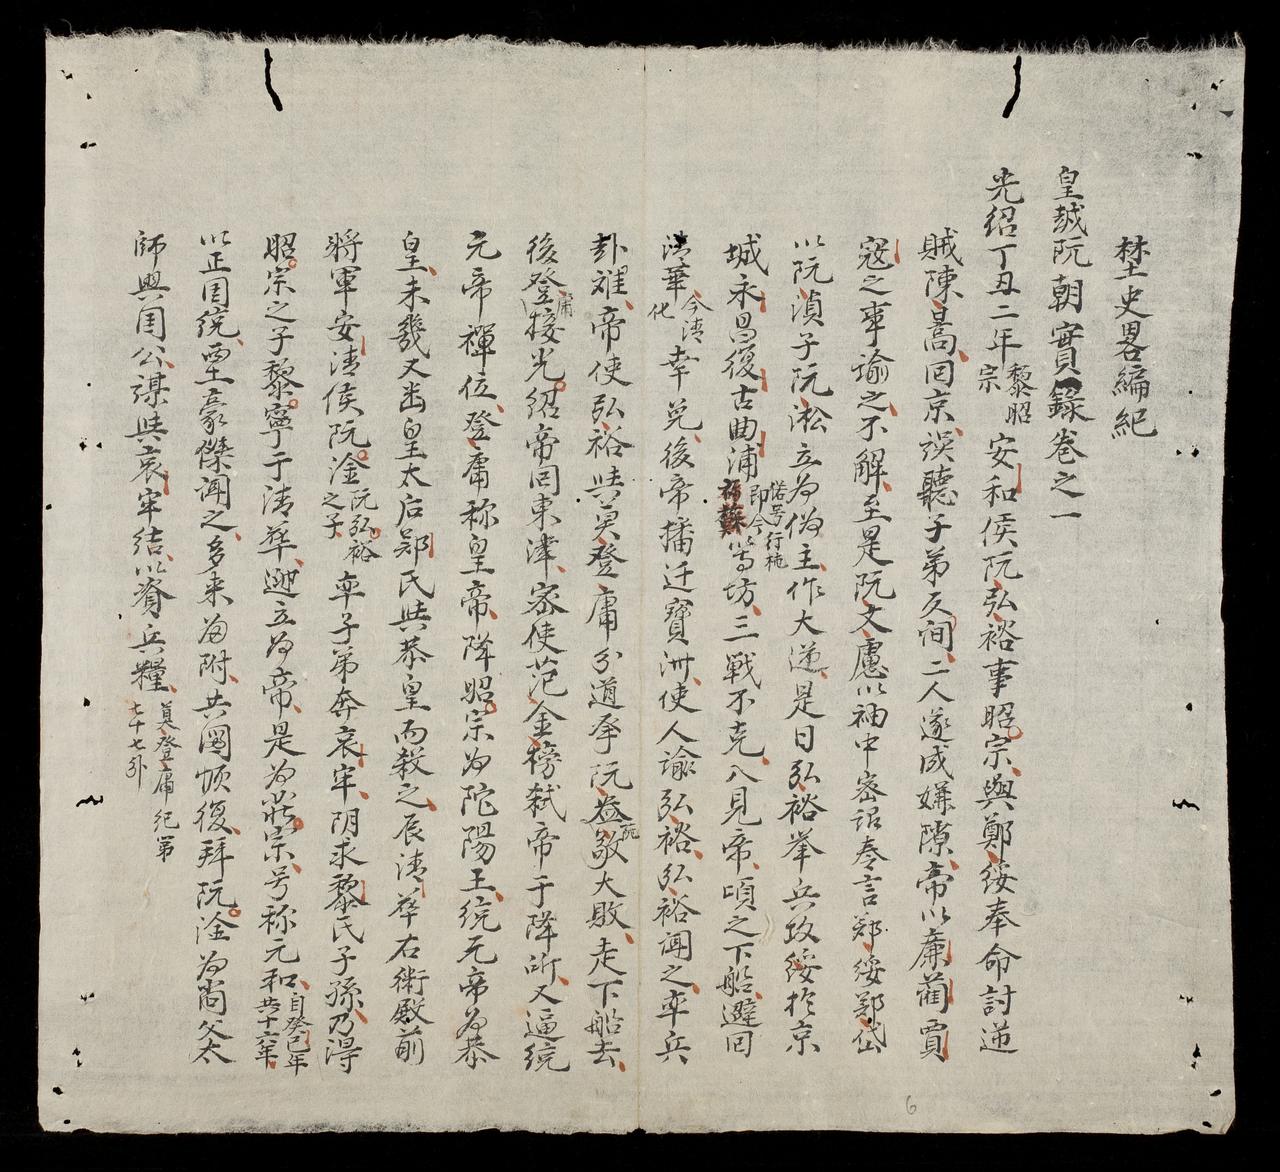 埜史畧編紀
皇越阮朝實錄卷之一
光紹丁丑二年黎昭宗安和侯阮弘裕事昭宗與鄭綏奉命討逆
賊陳暠回京誤聽子弟反間二人遂成嫌隙帝以廉藺賈
寇之事諭之不解至是阮文慮以袖中密詔奏言鄭綏鄭岱
以阮湞子阮淞立为偽主作大逆是日弘裕举兵攻綏扵京
城永昌復古曲浦俗号行桃即今蘇等坊三戰不克入見帝頃之下船避回
清華今清化幸兑後帝播迁寶洲使人諭弘裕弘裕聞之率兵
赴難帝使弘裕與莫登庸分道爭阮敬大敗走下船去
後登庸接光紹帝回東津密使范金榜弑帝于降所又逼統
元帝禪位登庸称皇帝降昭宗为陀陽王統元帝为恭
皇未幾又幽皇太后鄭氏與恭皇而殺之辰清華右衛殿前
將軍安清侯阮淦阮弘裕之子率子弟奔哀牢阴求黎氏子孫乃得
昭宗之子黎寧于清華迎立为帝是为莊宗号称元和自癸巳年共十六年
以正国統堊豪傑聞之多来为附共圖恢復拜阮淦为尚父太
師興国公謀與哀牢結以資兵糧莫登庸紀第七十七张
6